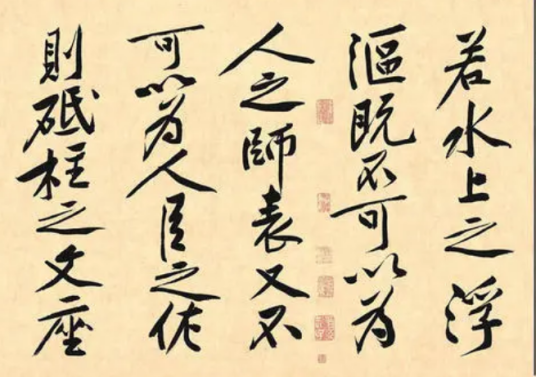 若水上之浮
漚既不可以為
人之師表又不
可以為人臣之佐
則砥柱之文座